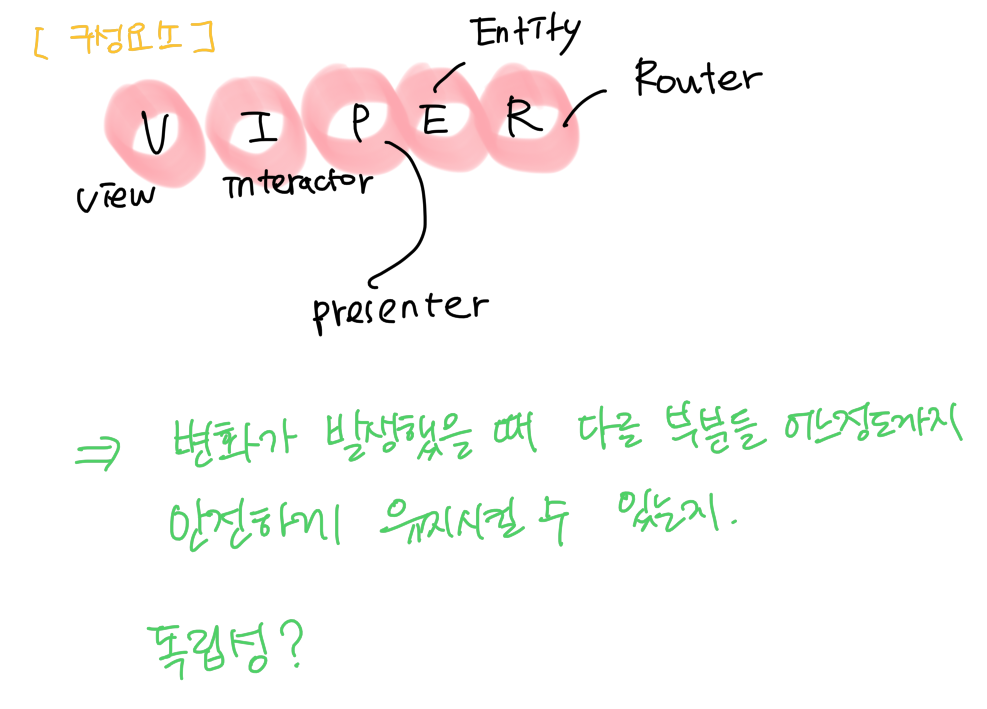 [ 구성요소 ]
Entity
V I P E R
Router
View
Interactor
presenter
⇒ 변화가 발생했을 때 다른 부분들 어느정도까지
안전하게 유지시킬 수 있는지.
독립성?